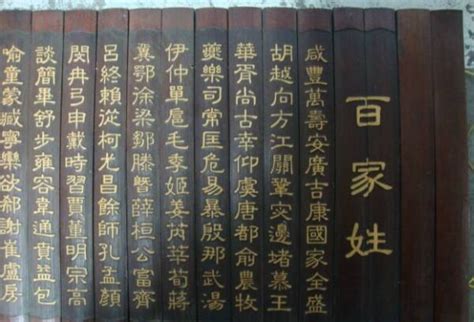 百家姓
咸豐萬壽安廣吉康國家全盛
胡越向方江關鞏邊堵慕王
華胥尚古幸仰虞唐都俞農牧
夔樂司常匡危易暴殷那武湯
伊仲單扈毛季姬姜芮莘荀蔣
冀鄂徐梁鄒滕暨薛桓公富齊
呂終賴從柯尤昌餘師孔孟顏
閔冉弓申戴時習賈董明宗高
談簡畢舒步雍容韋通賁益包
喻童蒙臧寧欒欲郗謝崔盧房